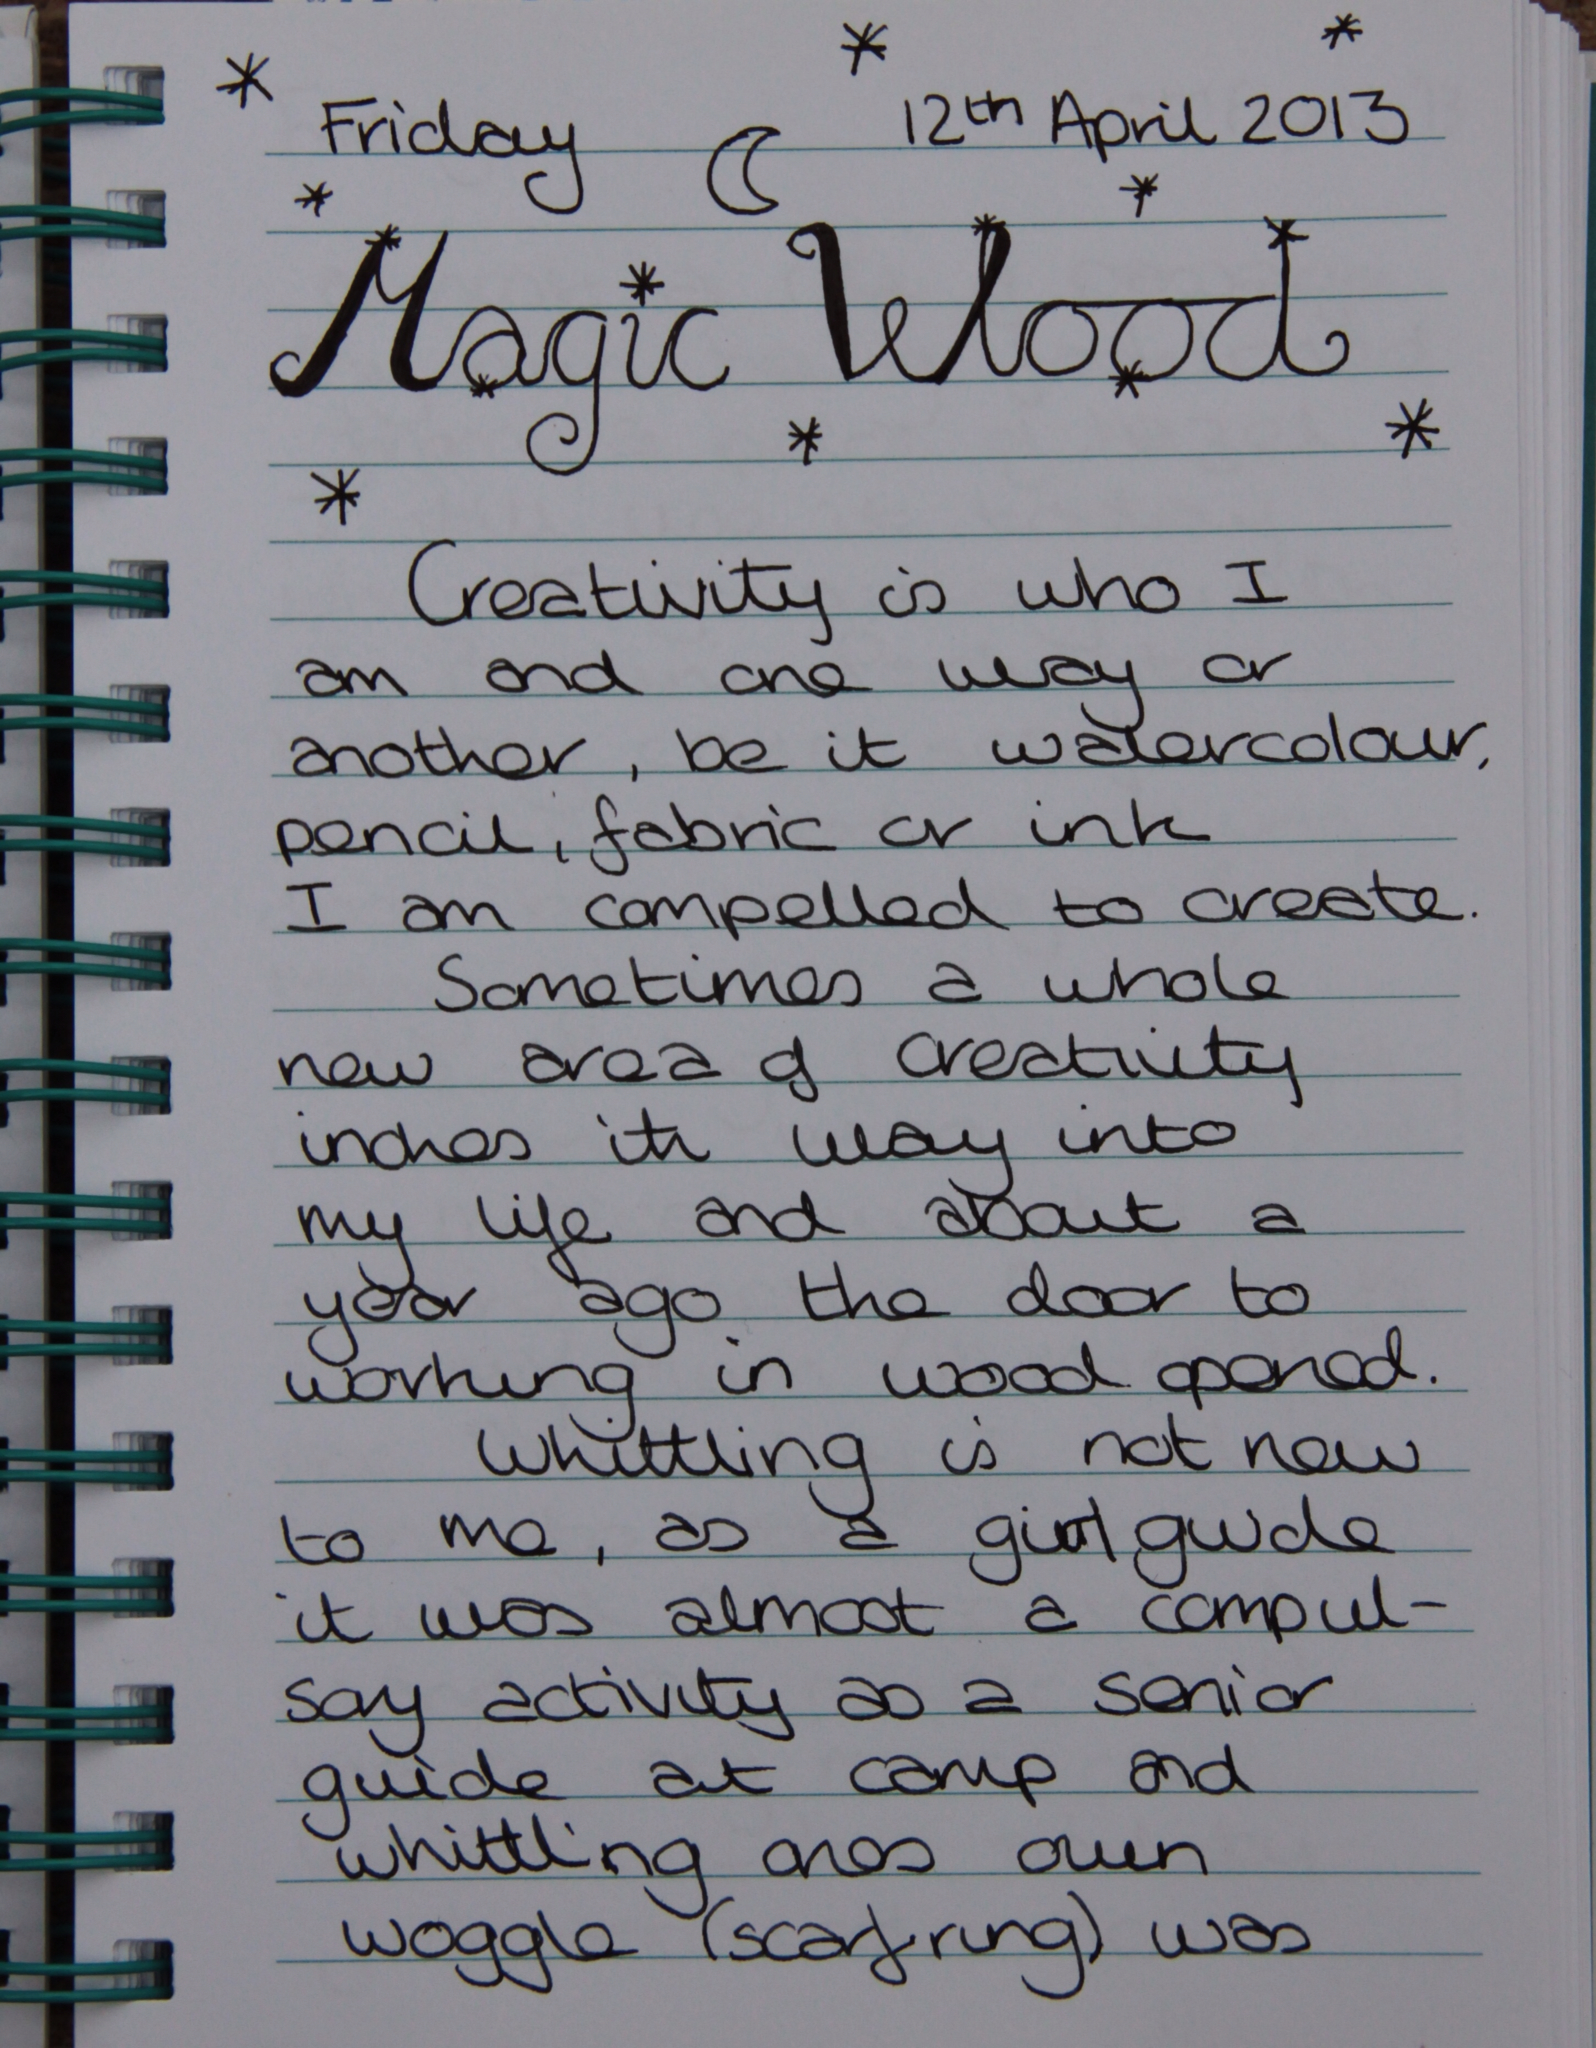 Friday 12th April 2013
Magic Wood
Creativity is who I
am and one way or
another, be it watercolour,
pencil, fabric or ink
I am compelled to create.
Sometimes a whole
new area of creativity
inches its way into
my life and about a
year ago the door to
working in wood opened.
Whittling is not new
to me, as a girl guide
it was almost a compul-
sary activity as a senior
guide at camp and
whittling ones own
woggle (scarf ring) was